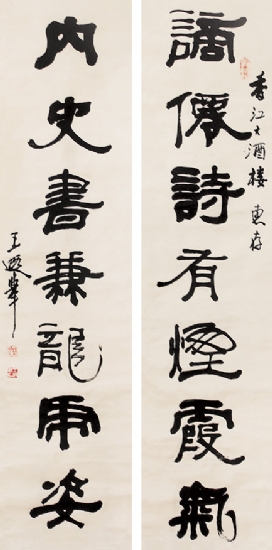 香江大酒楼惠存
謫僊詩有煙霞氣
内史書兼龍虎姿
王遐舉